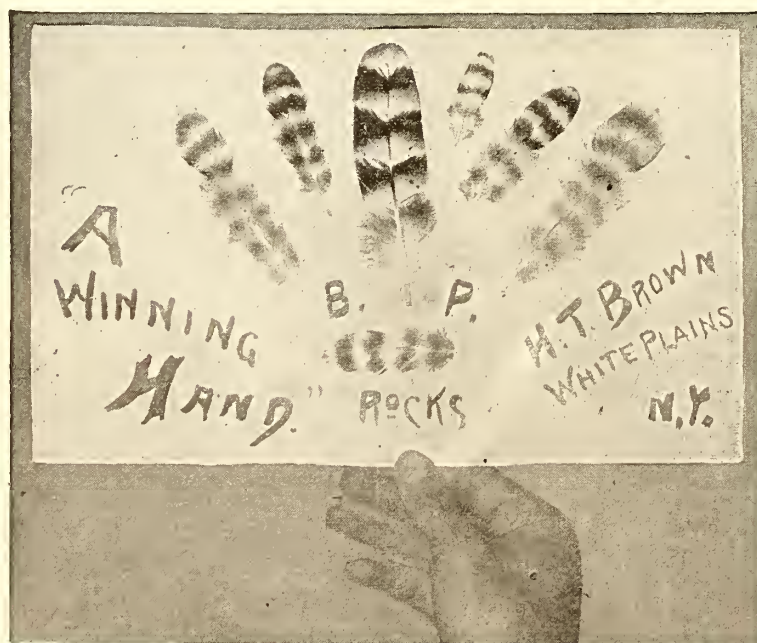 "A
WINNING
HAND."
B. P.
ROCKS
H. T. BROWN
WHITE PLAINS
N.Y.